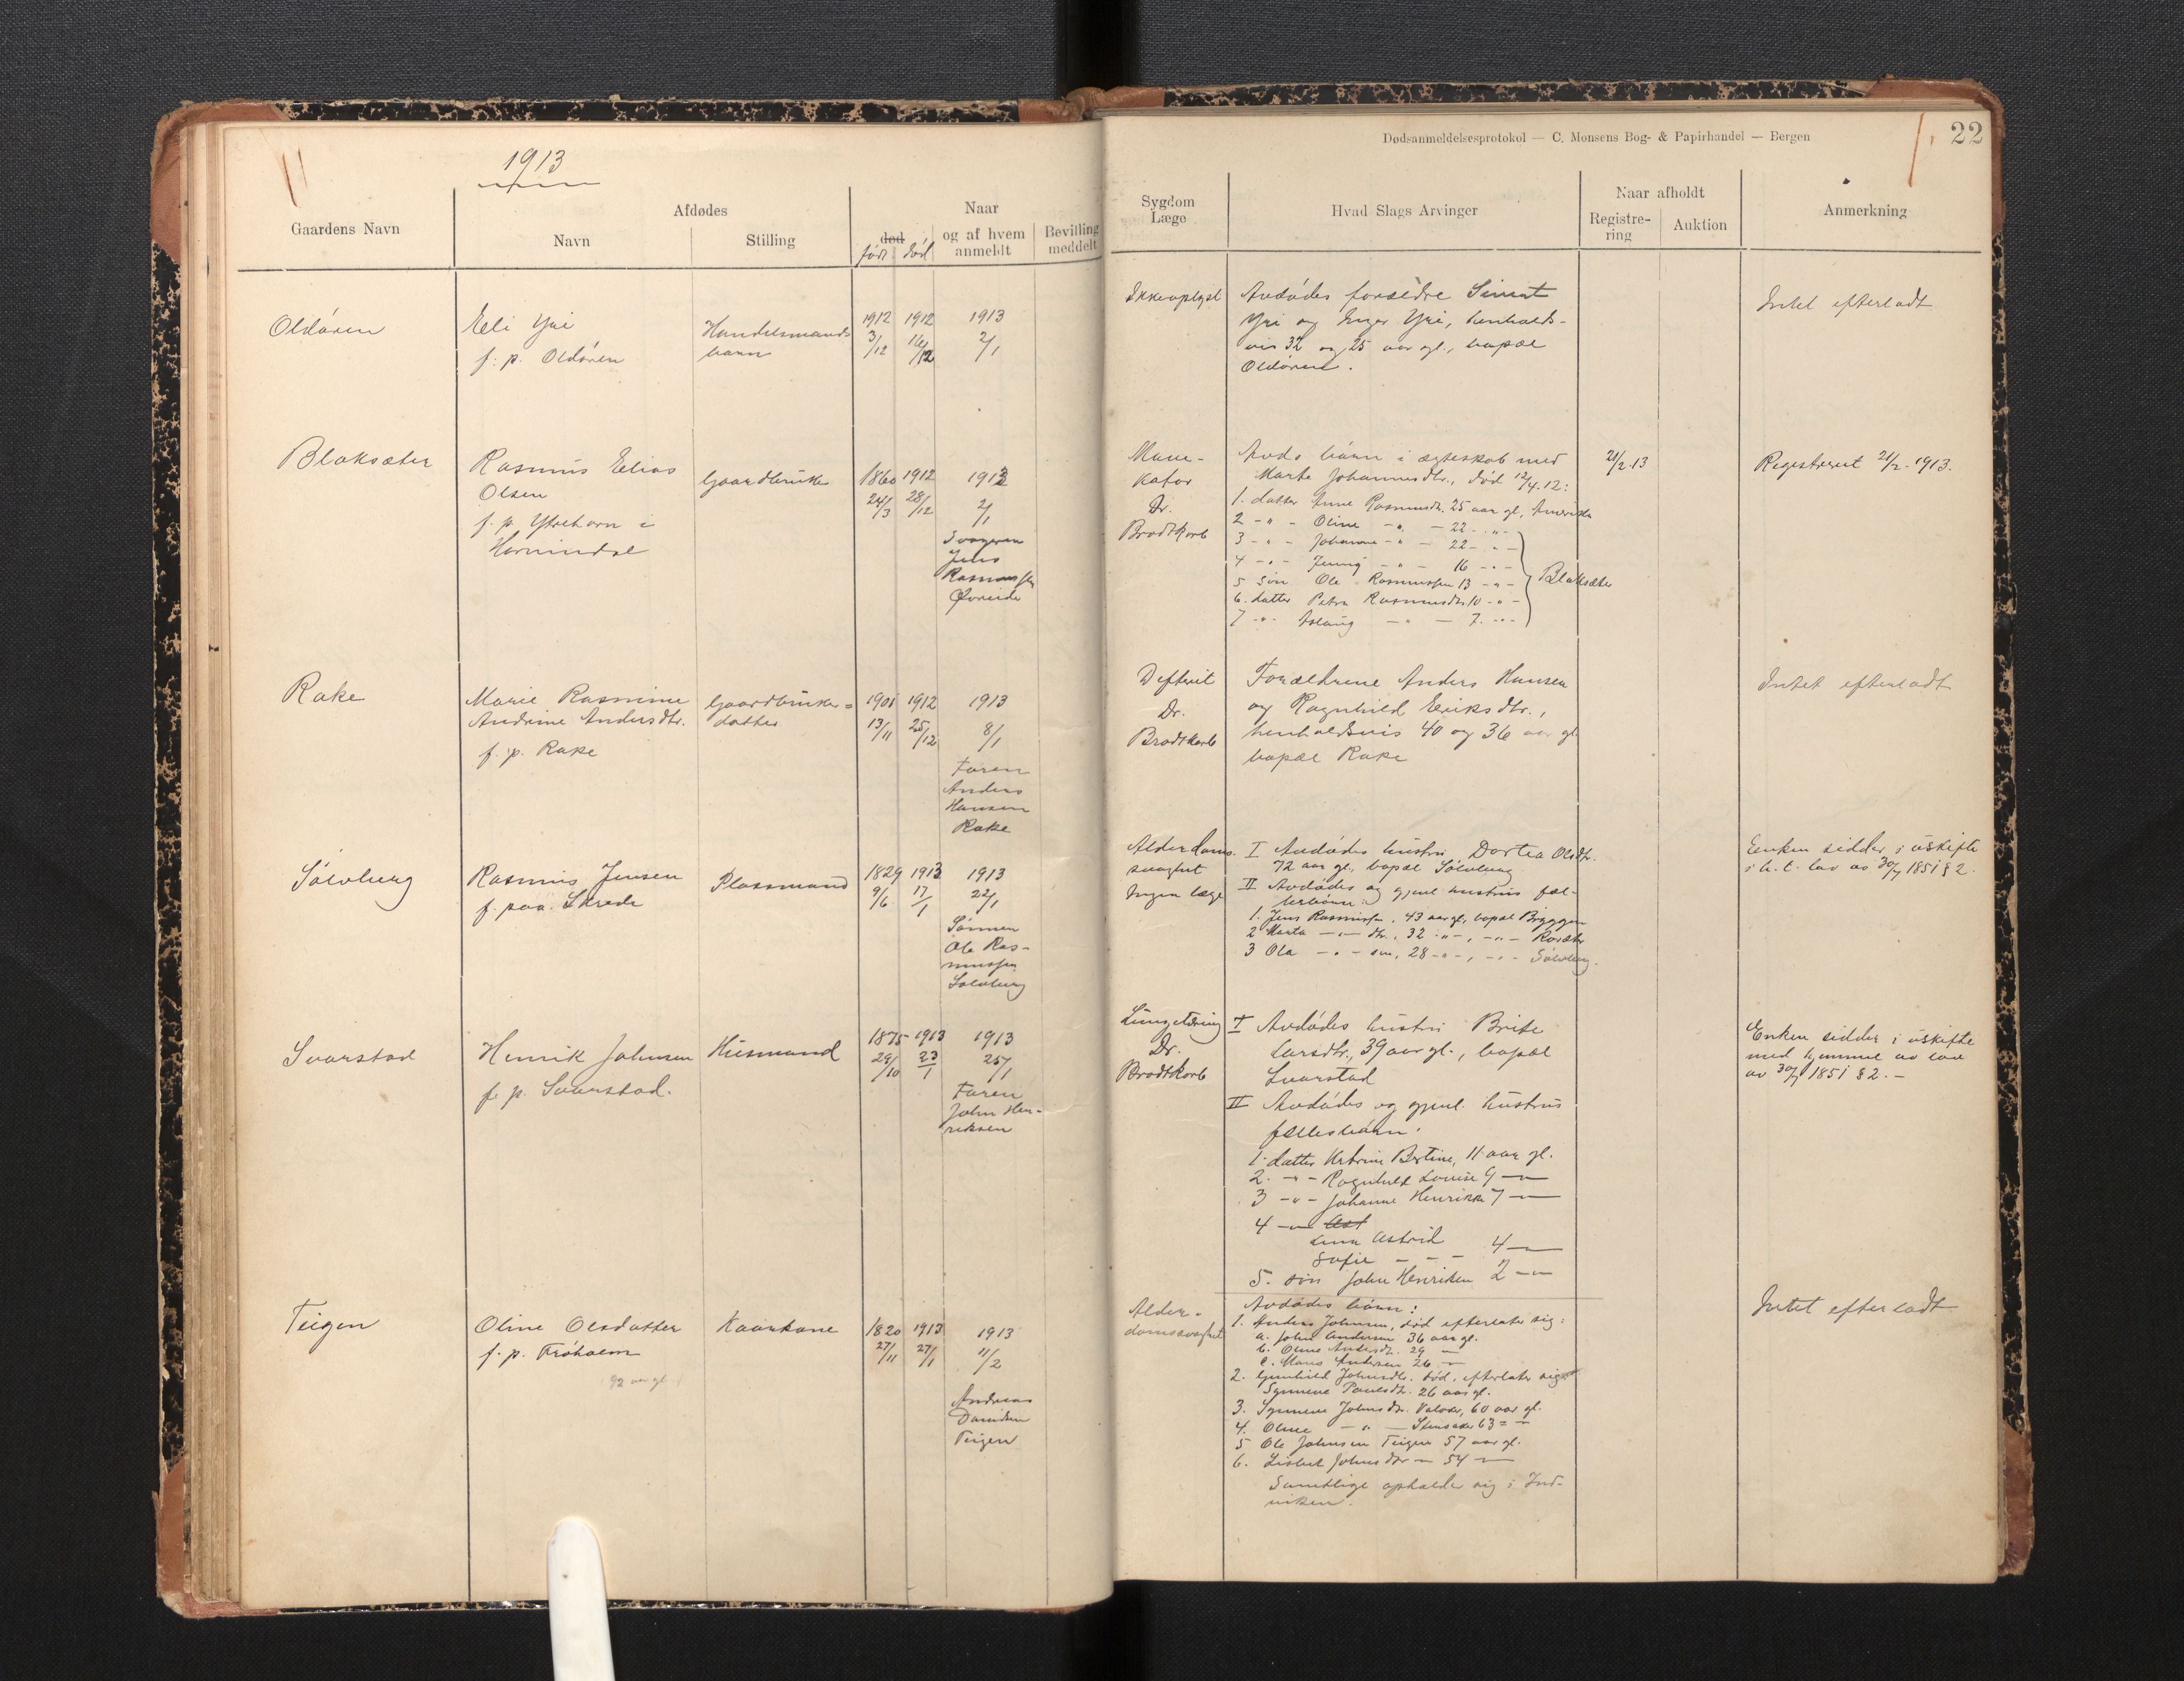 1913
Gaardens Navn
Afdødes
Navn
Stilling
død
født død
Naar
og af hvem
anmeldt
Bevilling
meddelt
Oldøren
Eli Yri
f. p. Oldøren
Handelsmands
barn
1912 1912
3/12 16/12
1913
2/1
Blaksæter
Rasmus Elias
Olsen
f. p. Ytrehorn i
Hornindal
Gaardbruker
1860 1912
24/3 28/12
1913
2/1
Svogeren
Jens
Rasmussen
Øvreide
Rake
Marie Rasmine
Andrine Andersdtr.
f. p. Rake
Gaardbruker=
datter
1901 1912
13/11 25/12
1913
8/1
Faren
Anders
Hansen
Rake
Sølvberg
Rasmus Jensen
f. paa Skrede
Plassmand
1829 1913
9/6 17/1
1913
22/1
Sønnen
Ole Ras-
mussen
Sølvberg
Svarstad
Henrik Johnsen
f. p. Svarstad.
Husmand
1875 1913
29/10 23/1
1913
25/1
Faren
John Hen-
riksen
Teigen
Oline Olsdatter
f. p. Frøholm
92 aar gl
Kaarkone
1820 1913
27/11 27/1
1913
11/2
Andreas
Davidsen
Teigen
Dødsanmeldelsesprotokol — C. Monsens Bog- & Papirhandel — Bergen
22
Sygdom
Læge
Hvad Slags Arvinger
Naar afholdt
Registre-
ring
Auktion
Anmerkning
Ikke oplyst
Avdødes forældre Simat
Yri og Inger Yri, henholds-
vis 32 og 25 aar gl., bopæl
Oldøren.
Intet efterladt
Mave-
katar
Dr.
Brodtkorb
Avds børn i ægteskab med
Marte Johannesdtr., død 12/4.12:
1. datter Anne Rasmusdtr. 25 aar gl., Amerika
2 -"- Oline -"- 22 -"-
3 -"- Johanne -"- 22 -"-
4 -"- Jenny -"- 16 -"-
5 søn Ole Rasmussen 13 -"-
Blaksæter
6. datter Petra Rasmusdtr 10 -"-
7 -"- Aslaug -"- 7 -"-
21/2.13
Registreret 21/2-1913.
Difterit
Dr.
Brodtkorb
Forældrene Anders Hansen
og Ragnhild Eriksdtr.,
henholdsvis 40 og 36 aar gl
bopæl Rake
Intet efterladt
Alderdoms-
svaghet
Ingen læge
I Avdødes hustru Dortea Olsdtr.
72 aar gl., bopæl Sølvberg
II Avdødes og gjenl. hustrus fæl-
lesbørn:
1. Jens Rasmussen, 43 aar gl, bopæl Bryggen
2 Marta -"- dtr., 32 -"-, -"- Rosæter
3 Ola -"- søn, 28 -"-, -"- Sølvberg.
Enken sidder i uskifte
i h. t. lov av 30/7 1851 § 2.
Lungetæring
Dr.
Brodtkorb
I Avdødes hustru Brite
Larsdtr., 39 aar gl., bopæl
Svarstad
II Avdødes og gjenl. hustrus
fællesbørn:
1. datter Katrine Bertine, 11 aar gl.
2. -"- Ragnhild Louise 9 -"-
3 -"- Johanne Henrikke 7 -"-
4 -"- Ast
Lina Astrid
Sofie - - - 4 -"-
5. søn John Henriksen 2 -"-
Enken sidder i uskifte
med hjemmel av lov
av 30/7 1851 § 2. -
Alder-
domssvaghet
Avdødes børn:
1. Anders Johnsen, død efterlater sig:
a. John Andersen 36 aar gl.
b. Oline Andersdtr. 29 -"-
c. Mons Andersen 26 -"-
2. Gunhild Johnsdtr. død, efterlater sig
Synneve Paulsdtr. 26 aar gl.
3. Synneve Johnsdtr. Valaker, 60 aar gl.
4. Oline -"- Stensaker 63 = -"-
5 Ole Johnsen Teigen 57 aar gl.
6. Lisbet Johnsdtr -"- 54 -"-
Samtlige opholder sig i Ind-
viken.
Intet efterladt